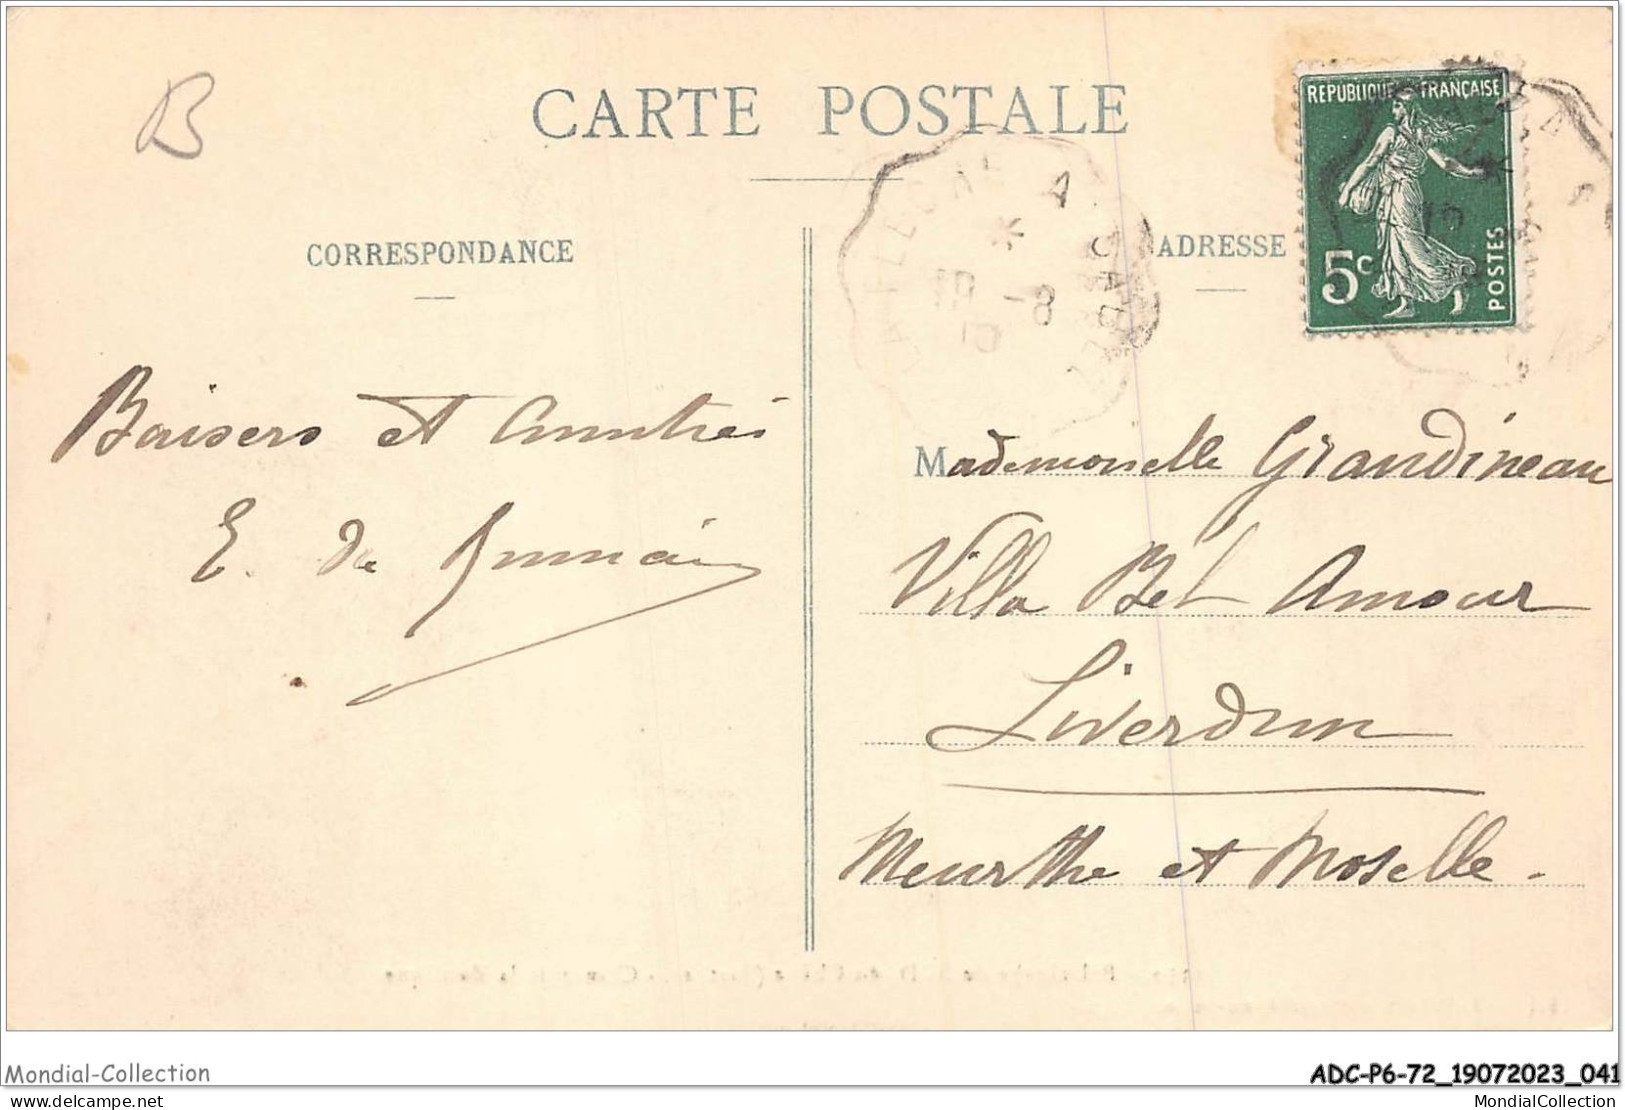 B
CARTE POSTALE
CORRESPONDANCE
ADRESSE
REPUBLIQUE FRANÇAISE
5c
POSTES
LA FLECHE A
19 -8
10
Baisers et Amitiés
E. de
Mademoiselle Grandineau
Villa Bel Amour
Liverdun
Meurthe et Moselle.
Mondial-Collection
ADC-P6-72_19072023_041
delcampe.net
MondialCollection